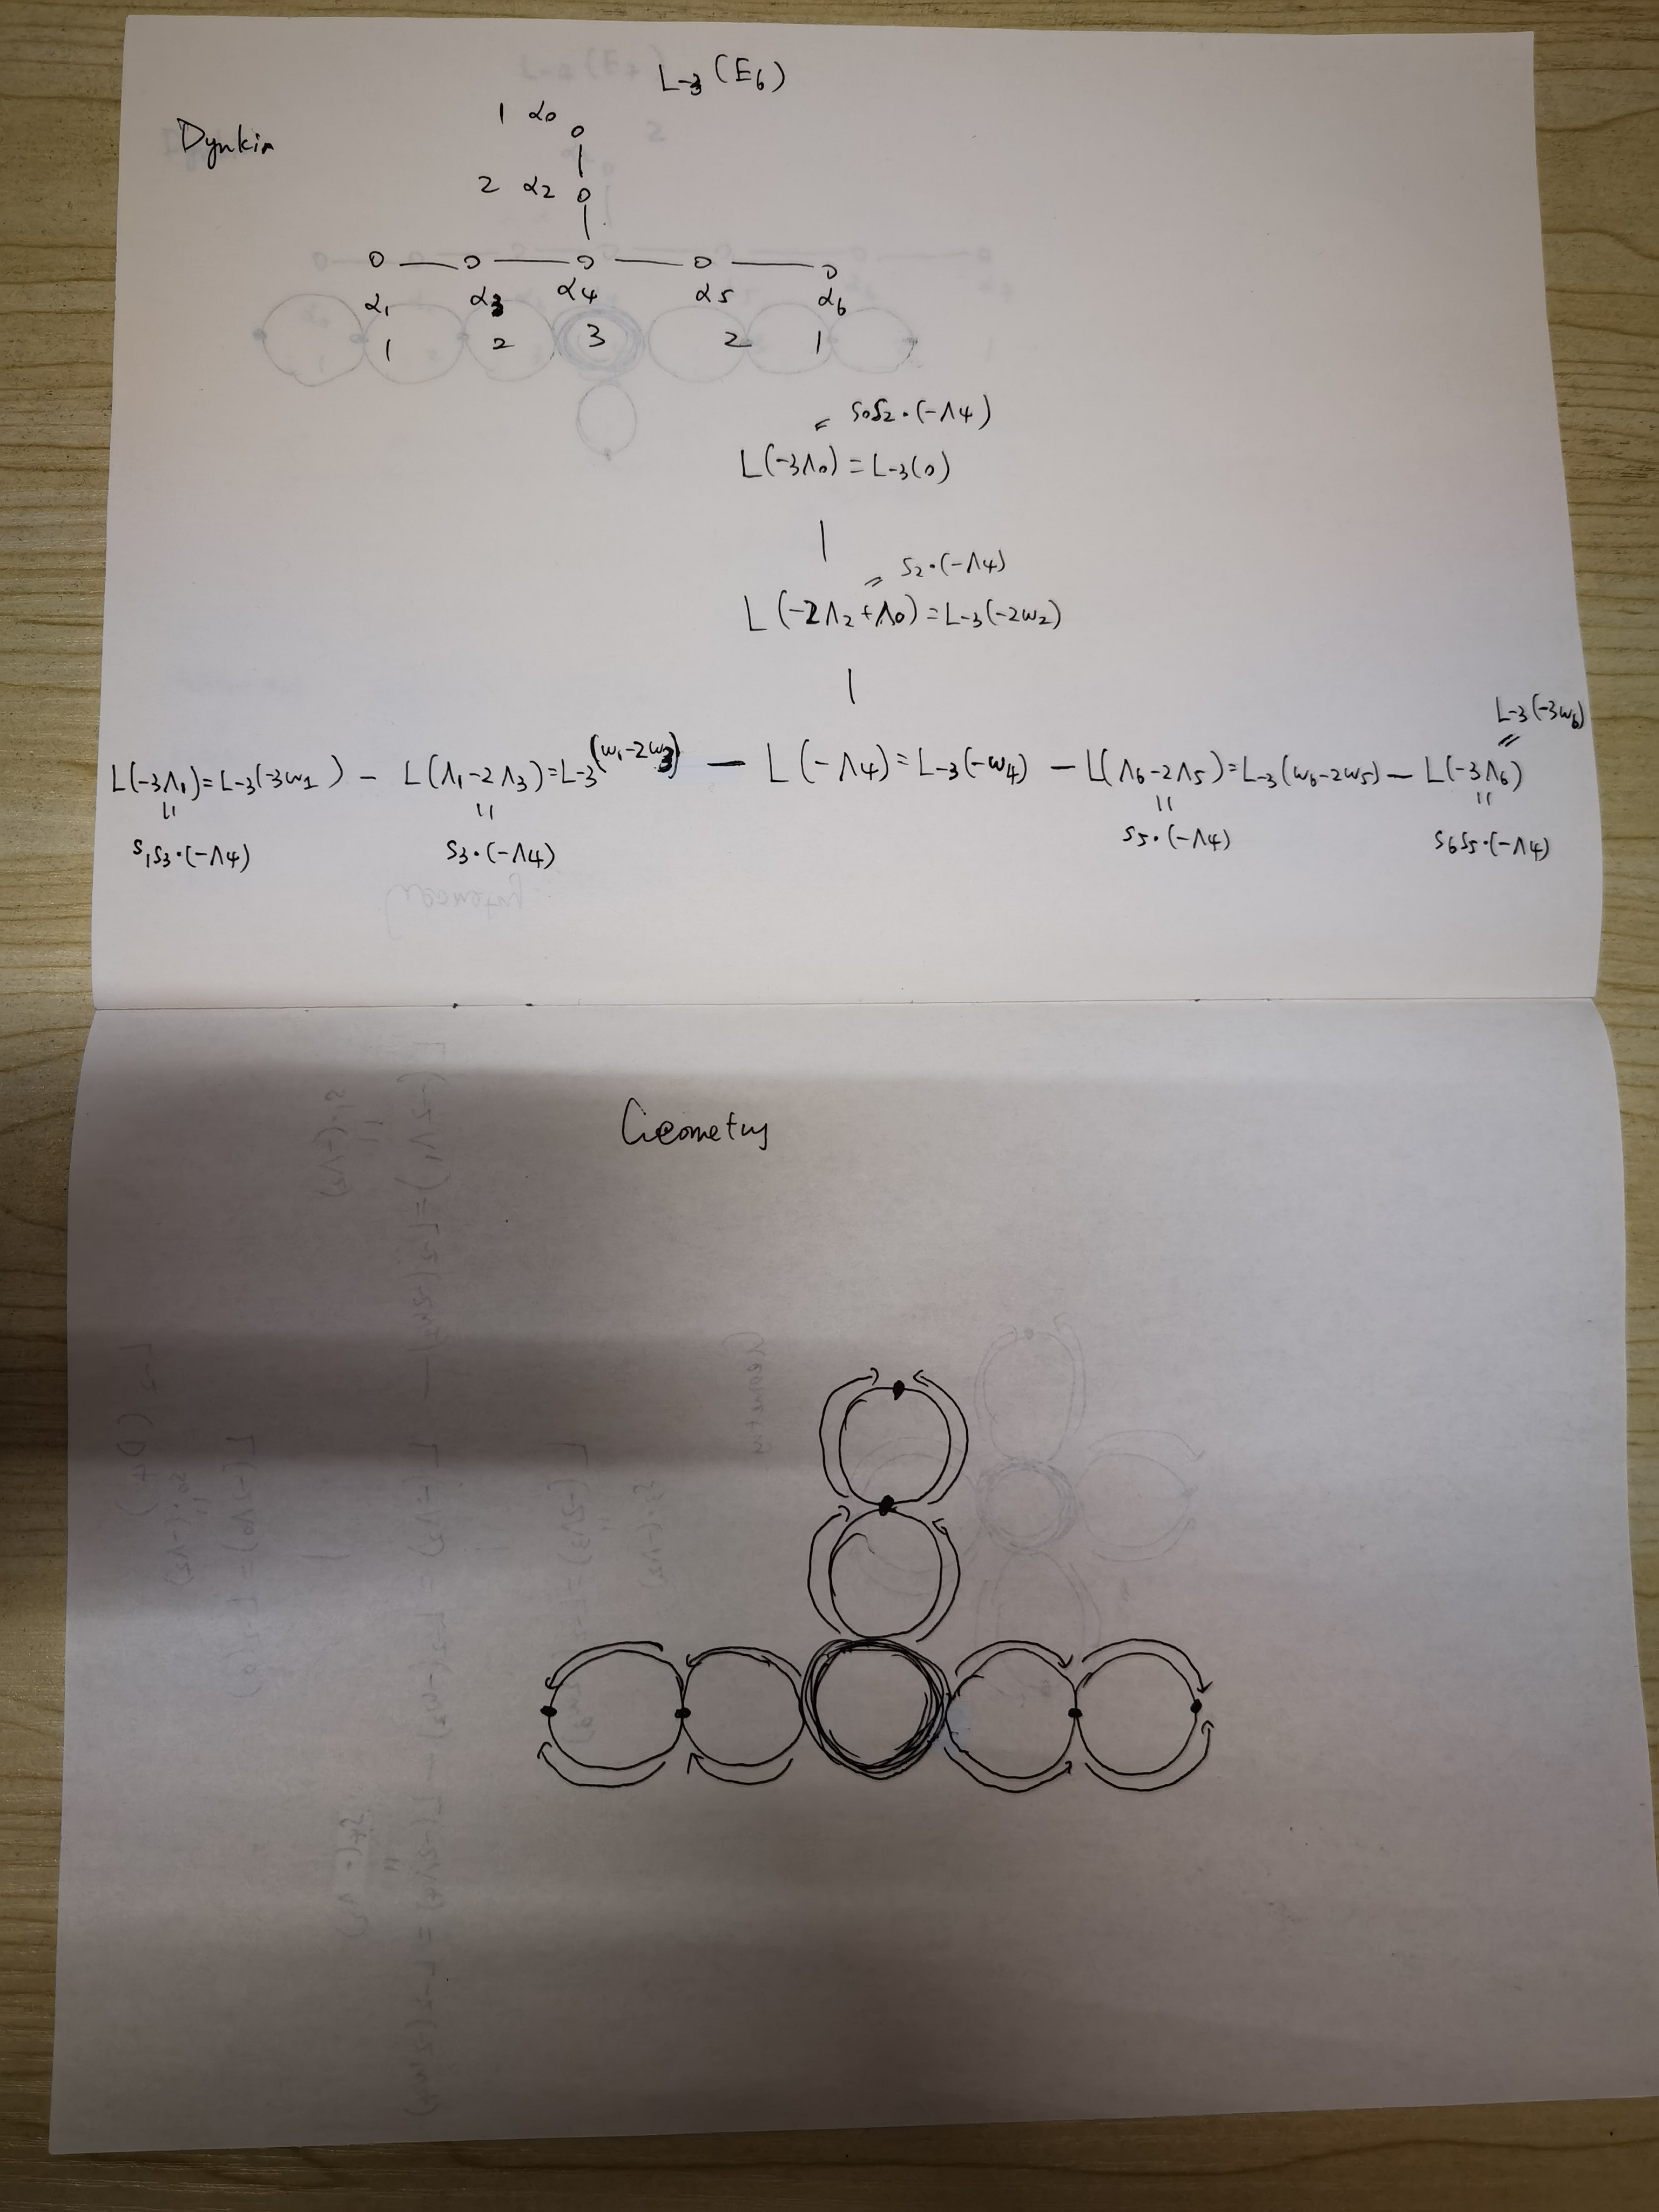 L-3(E6)
Dynkin
1 α0
2 α2
α1 α3 α4 α5 α6
1 2 3 2 1
= s0s2·(-Λ4)
L(-3Λ0)=L-3(0)
= s2·(-Λ4)
L(-2Λ2+Λ0)=L-3(-2ω2)
L-3(-3ω6)
L(-3Λ1)=L-3(-3ω1) — L(Λ1-2Λ3)=L-3(ω1-2ω3) — L(-Λ4)=L-3(-ω4) — L(Λ6-2Λ5)=L-3(ω6-2ω5) — L(-3Λ6)
s1s3·(-Λ4) s3·(-Λ4) s5·(-Λ4) s6s5·(-Λ4)
Geometry